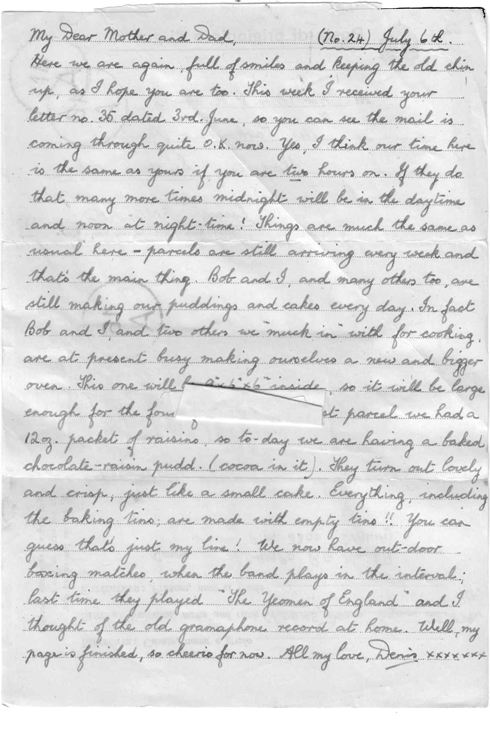 My Dear Mother and Dad, (No. 24) July 6th.
Here we are again, full of smiles and keeping the old chin
up, as I hope you are too. This week I received your
letter no. 35 dated 3rd. June, so you can see the mail is
coming through quite O.K. now. Yes, I think our time here
is the same as yours if you are two hours on. If they do
that many more times midnight will be in the daytime
and noon at night-time! Things are much the same as
usual here - parcels are still arriving every week and
that's the main thing. Bob and I, and many others too, are
still making our puddings and cakes every day. In fact
Bob and I, and two others we muck in with for cooking,
are at present busy making ourselves a new and bigger
oven. This one will inside, so it will be large
enough for the four parcel we had a
12oz. packet of raisins, so to-day we are having a baked
chocolate-raisin pudd. (cocoa in it). They turn out lovely
and crisp, just like a small cake. Everything, including
the baking tins, are made with empty tins!! You can
guess that's just my line! We now have out-door
boxing matches, when the band plays in the interval;
last time they played "The Yeomen of England" and I
thought of the old gramaphone record at home. Well, my
page is finished, so cheerio for now. All my love, Denis xxxxxxx